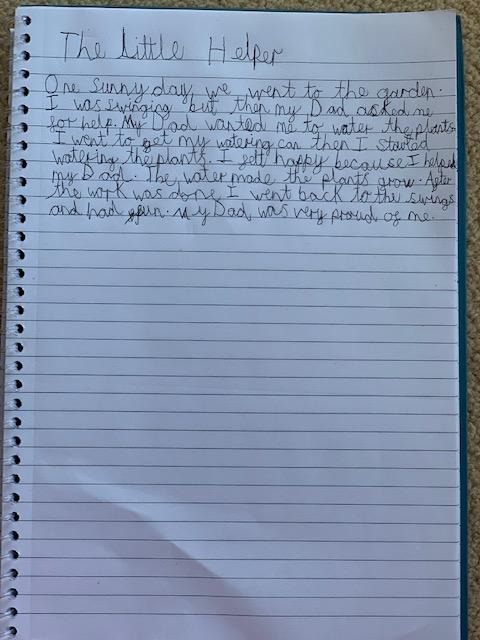 The Little Helper
One sunny day we went to the garden.
I was swinging but then my Dad asked me
for help. My Dad wanted me to water the plants.
I went to get my watering can then I started
watering the plants. I felt happy because I helped
my Dad. The water made the plants grow. After
the work was done I went back to the swings
and had fun. My Dad was very proud of me.